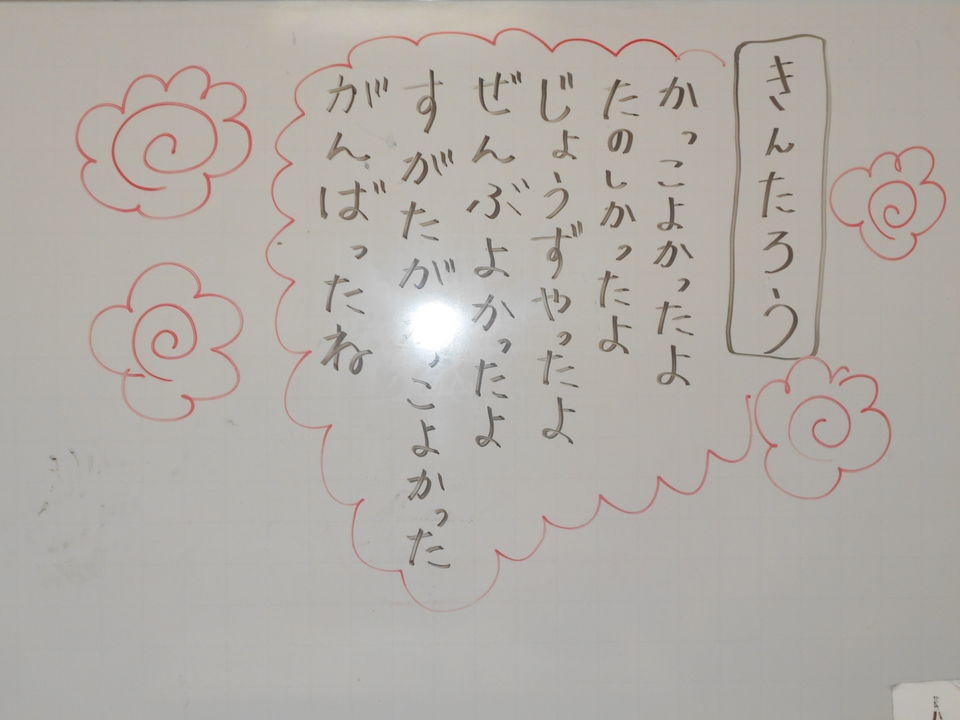 きんたろう
かっこよかったよ
たのしかったよ
じょうずやったよ
ぜんぶよかったよ
すがたが っこよかった
がんばったね